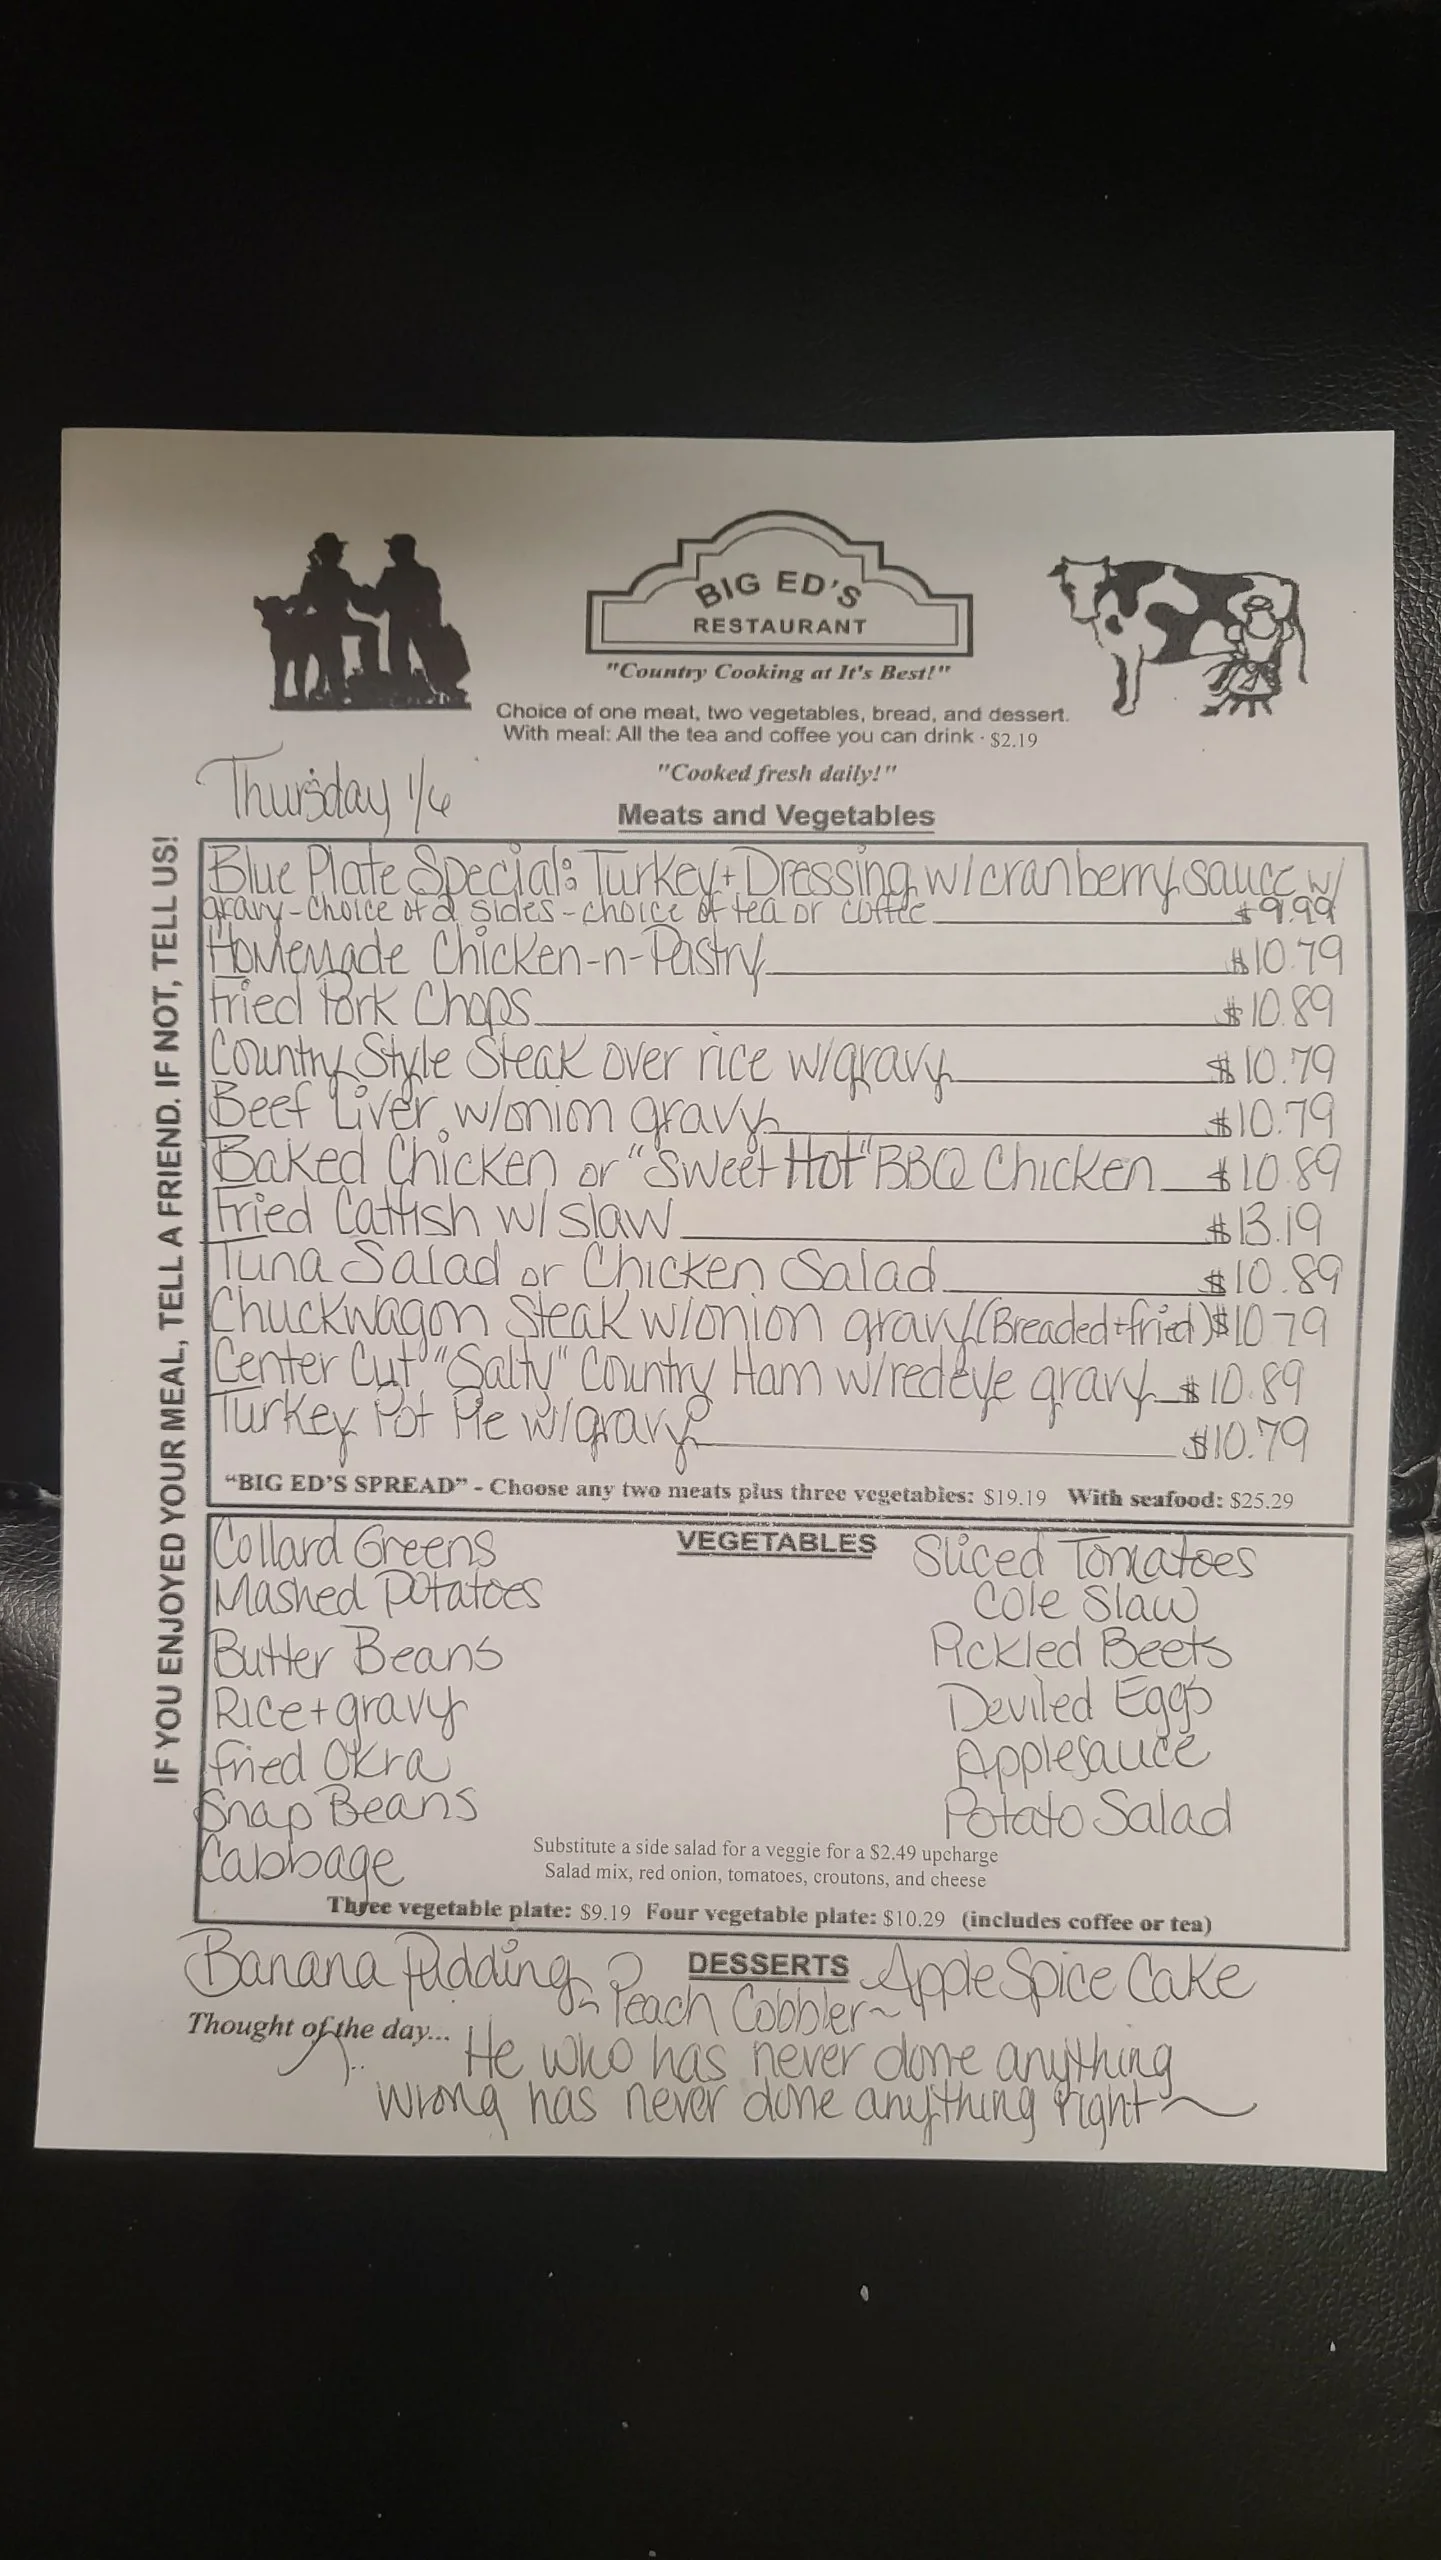 BIG ED'S
RESTAURANT
"Country Cooking at It's Best!"
Choice of one meat, two vegetables, bread, and dessert.
With meal: All the tea and coffee you can drink - $2.19
"Cooked fresh daily!"
Thursday 1/6
Meats and Vegetables
IF YOU ENJOYED YOUR MEAL, TELL A FRIEND. IF NOT, TELL US!
Blue Plate Special: Turkey + Dressing w/cranberry sauce w/
gravy - choice of 2 sides - choice of tea or coffee $9.99
Homemade Chicken-n-Pastry $10.79
Fried Pork Chops $10.89
Country Style Steak over rice w/gravy $10.79
Beef Liver w/onion gravy $10.79
Baked Chicken or "Sweet Hot" BBQ Chicken $10.89
Fried Catfish w/ slaw $13.19
Tuna Salad or Chicken Salad $10.89
Chuckwagon Steak w/onion gravy (Breaded + fried) $10.79
Center Cut "Salty" Country Ham w/redeye gravy $10.89
Turkey Pot Pie w/gravy $10.79
"BIG ED'S SPREAD" - Choose any two meats plus three vegetables: $19.19 With seafood: $25.29
VEGETABLES
Collard Greens
Mashed Potatoes
Butter Beans
Rice + gravy
Fried Okra
Snap Beans
Cabbage
Sliced Tomatoes
Cole Slaw
Pickled Beets
Deviled Eggs
Applesauce
Potato Salad
Substitute a side salad for a veggie for a $2.49 upcharge
Salad mix, red onion, tomatoes, croutons, and cheese
Three vegetable plate: $9.19 Four vegetable plate: $10.29 (includes coffee or tea)
DESSERTS
Banana Pudding ~ Peach Cobbler ~ Apple Spice Cake
Thought of the day...
He who has never done anything
wrong has never done anything right~